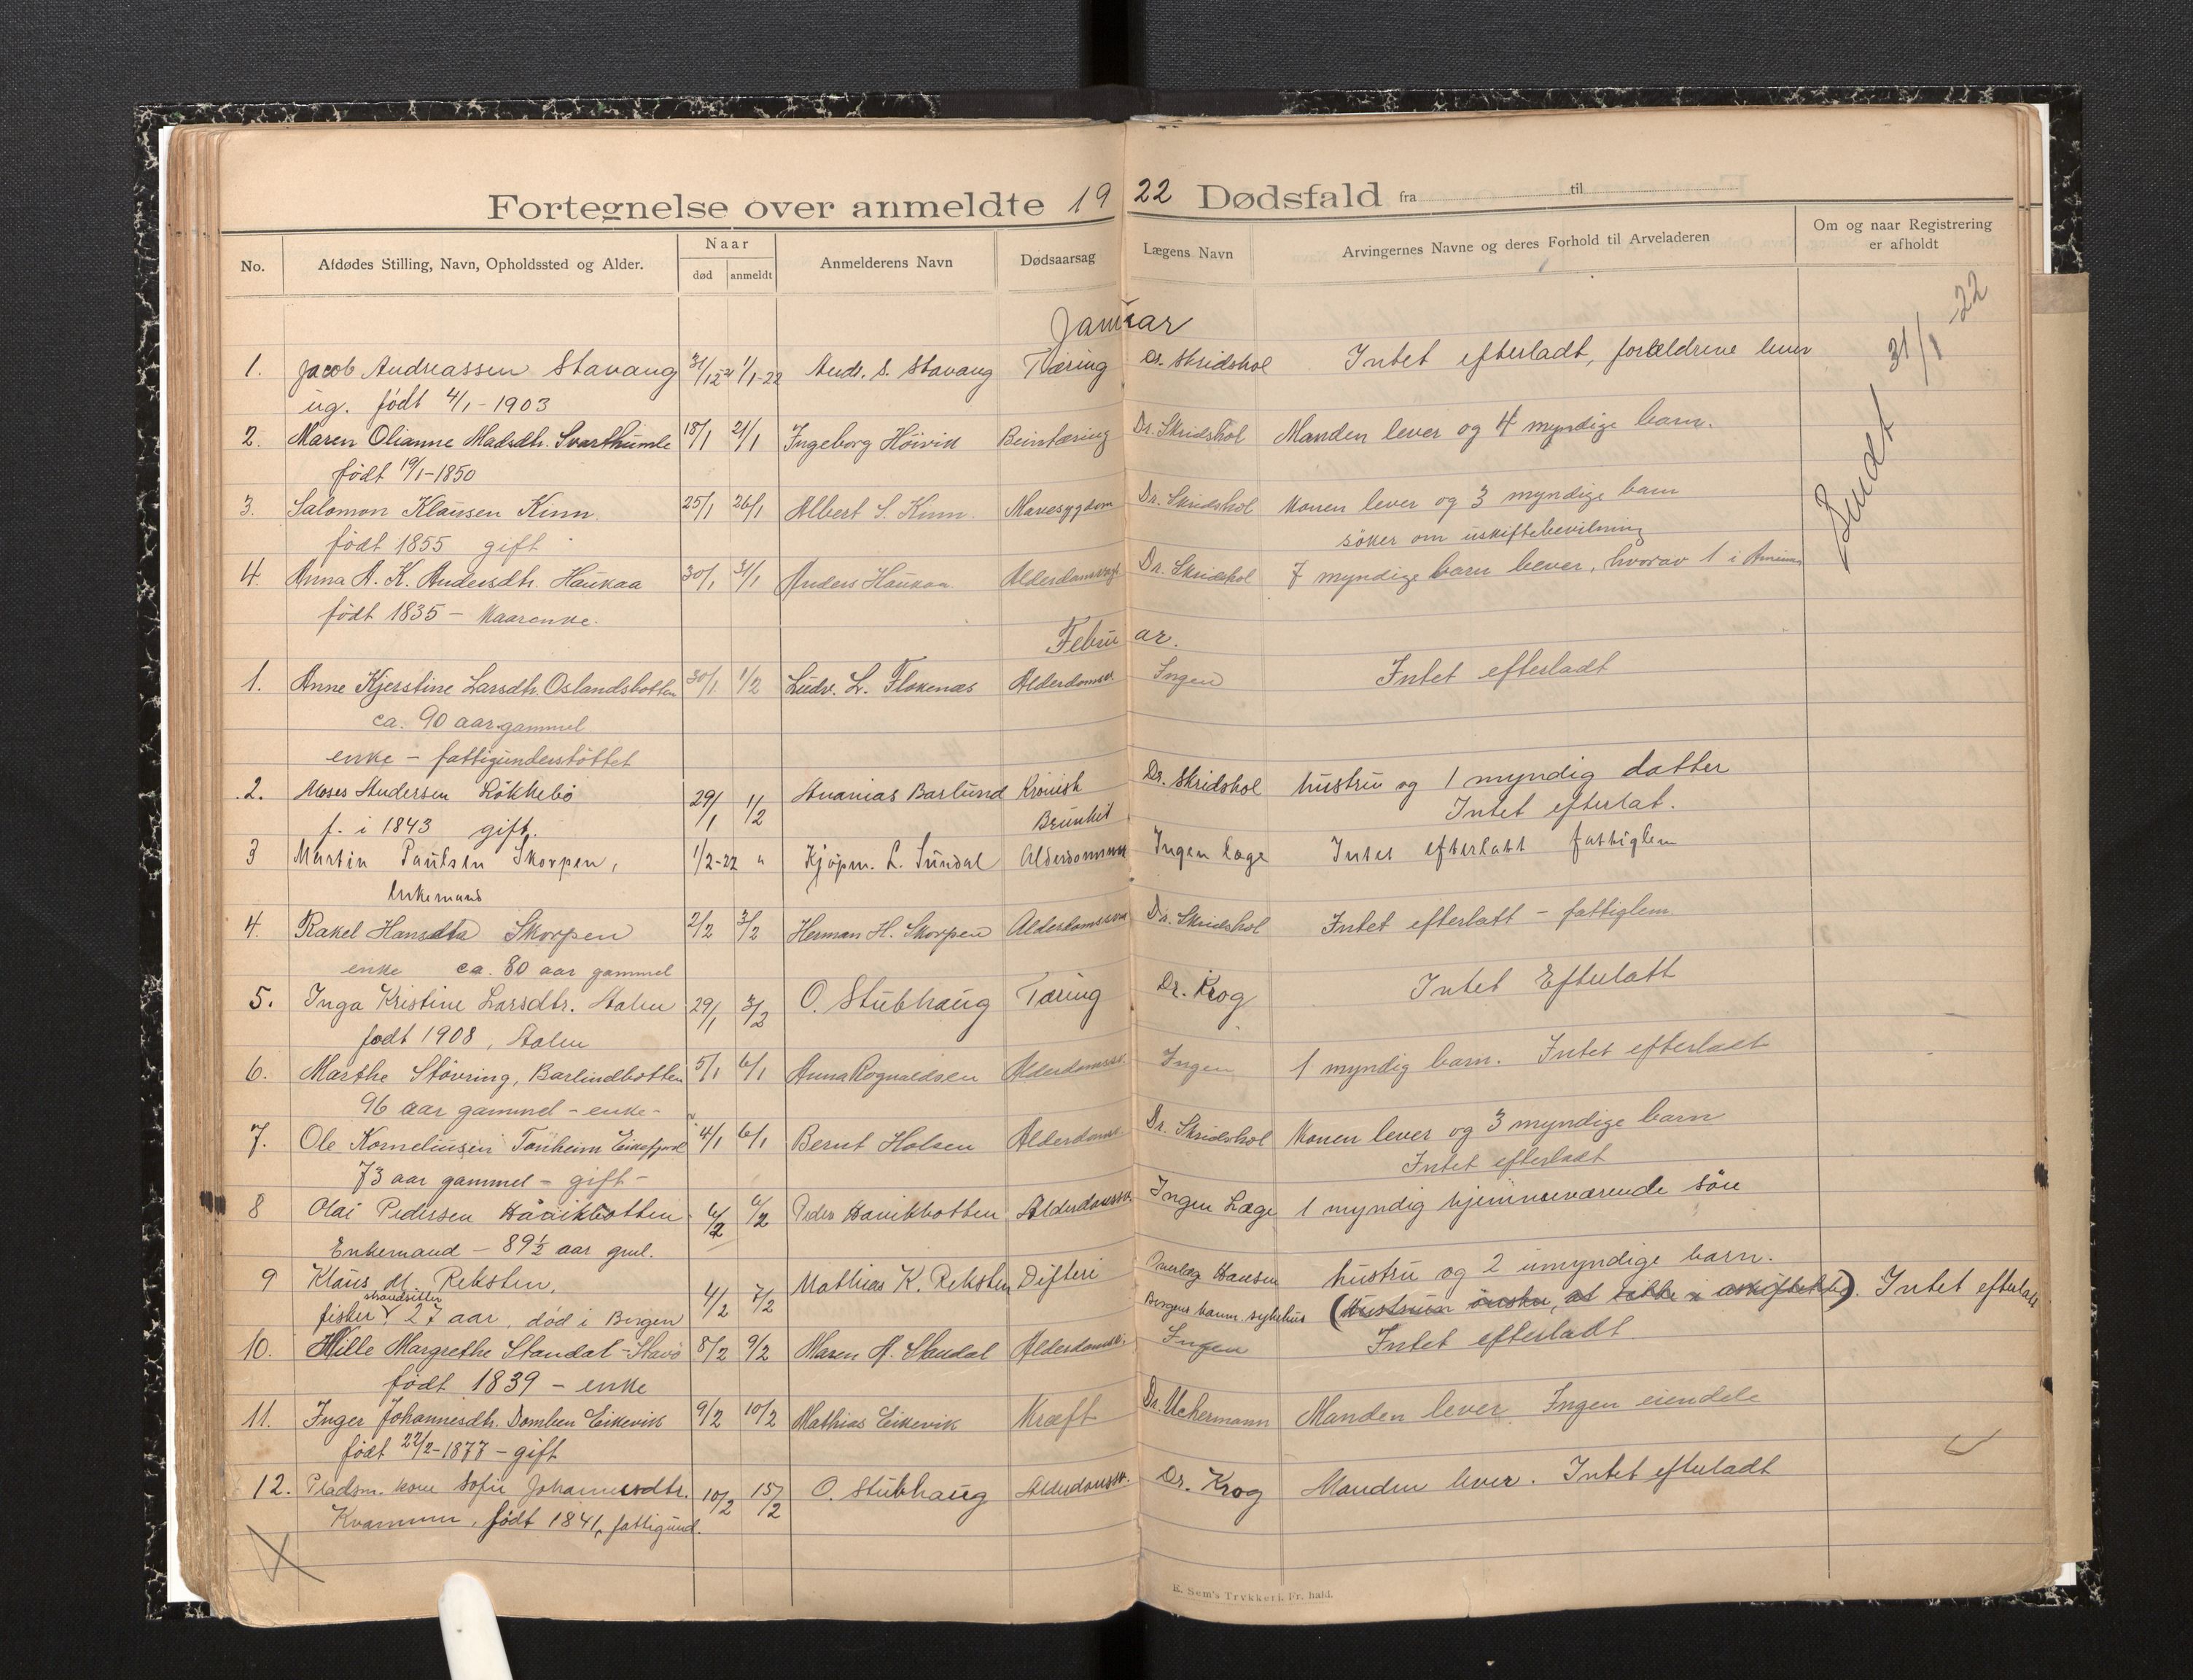 Fortegnelse over anmeldte 1922 Dødsfald fra til
No. Afdødes Stilling, Navn, Opholdssted og Alder. Naar død anmeldt Anmelderens Navn Dødsaarsag Lægens Navn Arvingernes Navne og deres Forhold til Arveladeren Om og naar Registrering er afholdt
Januar
1. Jacob Andreassen Stavang 31/12 21 1/1-22 Andr. S. Stavang Tæring Dr. Skridshol Intet efterladt, forældrene lever 31/1-22
ug. født 4/1-1903
2. Maren Olianne Madsdtr. Svarthumle 18/1 21/1 Ingeborg Höivik Beintæring Dr. Skridshol Manden lever og 4 myndige barn.
født 19/1-1850
3. Salomon Klausen Kinn 25/1 26/1 Albert S. Kinn Mavesygdom Dr. Skridshol Konen lever og 3 myndige barn
født 1855 gift söker om uskiftebevilning
4. Anna A. K. Andersdtr. Haukaa 30/1 31/1 Anders Haukaa Dr. Skridshol 7 myndige barn lever, hvorav 1 i
født 1835 - Kaarenke.
Februar.
1. Anne Kjerstine Larsdtr. Oslandsbotten 30/1 1/2 Ludv. L. Flokenæs Alderdomssv. Ingen Intet efterladt
ca. 90 aar gammel
enke - fattigunderstöttet
2. Moses Andersen Lökkebö 29/1 1/2 Ananias Barlund Kronisk Dr. Skridshol hustru og 1 myndig datter
f. i 1843 gift. Intet efterlat.
3 Martin Paulsen Skorpen, 1/2-22 " Kjøpm. L. Sundal Ingen læge Intet efterlatt fattiglem
Enkemand
4. Rakel Hansdtr Skorpen 2/2 3/2 Herman H. Skorpen Dr. Skridshol Intet efterlatt - fattiglem.
enke ca. 80 aar gammel
5. Inga Kristine Larsdtr. Stalen 29/1 3/2 O. Stubhaug Tæring Dr. Krog Intet Efterlatt
født 1908, Stalen
6. Marthe Stövring, Barlindbotten 5/1 6/1 Anna Rognaldsen Alderdomssv. Ingen 1 myndig barn. Intet efterladt
96 aar gammel - enke -
7. Ole Korneliusen Tonheim Eikefjord 4/1 6/1 Bernt Holsen Dr. Skridshol Konen lever og 3 myndige barn
73 aar gammel - gift - Intet efterladt
8 Olai Pedersen Håvikbotten 4/2 6/2 Peder Havikbotten Ingen Læge 1 myndig hjemmeværende sön
Enkemand - 89½ aar gml.
9 Klaus M. Reksten, 4/2 7/2 Mathias K. Reksten Difteri Hansen hustru og 2 umyndige barn.
strandsitter
fisker, 27 aar, død i Bergen Bergens komm. sykehus (Hustruen önsker, at sitte i uskiftet bo). Intet efterladt
10. Hille Margrethe Standal - Stavö 8/2 9/2 Maren A. Standal Alderdomssv. Ingen Intet efterladt
født 1839 - enke
11. Inger Johannesdtr. Domben Eikevik 9/2 10/2 Mathias Eikevik Kræft Dr. Uchermann Manden lever. Ingen eiendele
født 22/2-1877 - gift
12. Pladsm. kone Sofie Johannesdtr. 10/2 15/2 O. Stubhaug Alderdomssv. Dr. Krog Manden lever. Intet efterladt
Kvammen, født 1841, fattigund.
E. Sem's Trykkeri, Fr. hald.